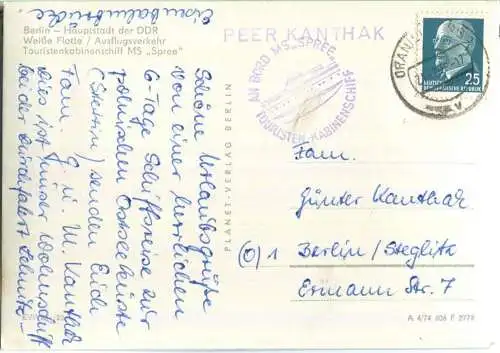 Berlin – Hauptstadt der DDR
Weiße Flotte / Ausflugsverkehr
Touristenkabinenschiff MS „Spree"
PEER KANTHAK
AN BORD MS „SPREE"
TOURISTEN-KABINENSCHIFF
ORAN
25
DEUTSCHE DEMOKRATISCHE REPUBLIK
PLANET-VERLAG BERLIN
Schöne Urlaubsgrüße
von einer herrlichen
6-Tage Schiffsreise zur
polnischen Ostseeküste
(Stettin) senden Euch
Fam. G. u. U. Kanthak
Dies ist unser Wohnschiff
bei der Durchfahrt
Eisenbahnbrücke
Fam.
Günter Kanthak
1 Berlin/Steglitz
Ermann Str. 7
A 4/74 606 P 2778